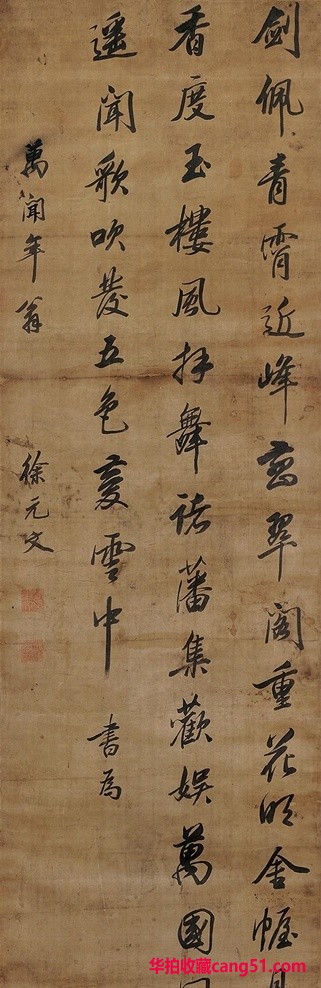 劍佩青霄近峰巒翠閣重花明金幄
香度玉樓風拜舞諸藩集歡娛萬國
遙聞歌吹發五色慶雲中 書為
萬聞年翁 徐元文
华拍收藏cang51.com